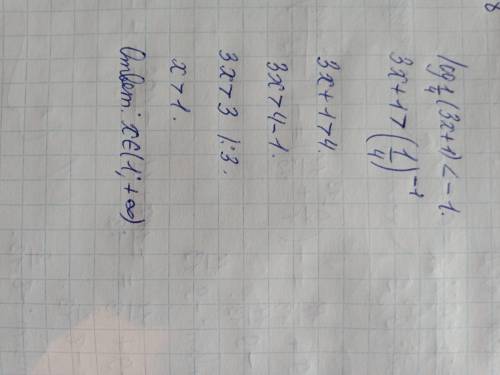 8
log_{1/4}(3x+1) < -1.
3x+1 > (1/4)^{-1}
3x+1 > 4
3x > 4-1.
3x > 3 |:3.
x > 1.
Ответ: x∈(1; +∞).